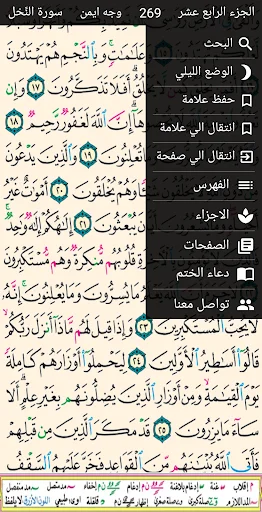 الجزء الرابع عشر
269
وجه ايمن
سورة النّحل
البحث
الوضع الليلي
حفظ علامة
انتقال الي علامة
انتقال الي صفحة
الفهرس
الاجزاء
الصفحات
دعاء الختم
تواصل معنا
وَبِٱلنَّجْمِ هُمْ يَهْتَدُونَ
أَفَلَا تَذَكَّرُونَ ١٧
إِنَّ ٱللَّهَ لَغَفُورٌ رَّحِيمٌ ١٨
تُعْلِنُونَ ١٩ وَٱلَّذِينَ يَدْعُونَ
وَهُمْ يُخْلَقُونَ ٢٠ أَمْوَٰتٌ غَيْرُ
يُبْعَثُونَ ٢١ إِلَٰهُكُمْ إِلَٰهٌ وَٰحِدٌ
قُلُوبُهُم مُّنكِرَةٌ وَهُم مُّسْتَكْبِرُونَ
مَا يُسِرُّونَ وَمَا يُعْلِنُونَ إِنَّهُۥ
لَا يُحِبُّ ٱلْمُسْتَكْبِرِينَ ٢٣ وَإِذَا قِيلَ لَهُم مَّاذَآ أَنزَلَ رَبُّكُمْ
قَالُوٓا۟ أَسَٰطِيرُ ٱلْأَوَّلِينَ ٢٤ لِيَحْمِلُوٓا۟ أَوْزَارَهُمْ كَامِلَةً
يَوْمَ ٱلْقِيَٰمَةِ وَمِنْ أَوْزَارِ ٱلَّذِينَ يُضِلُّونَهُم بِغَيْرِ عِلْمٍ أَلَا
سَآءَ مَا يَزِرُونَ ٢٥ قَدْ مَكَرَ ٱلَّذِينَ مِن قَبْلِهِمْ
فَأَتَى ٱللَّهُ بُنْيَٰنَهُم مِّنَ ٱلْقَوَاعِدِ فَخَرَّ عَلَيْهِمُ ٱلسَّقْفُ